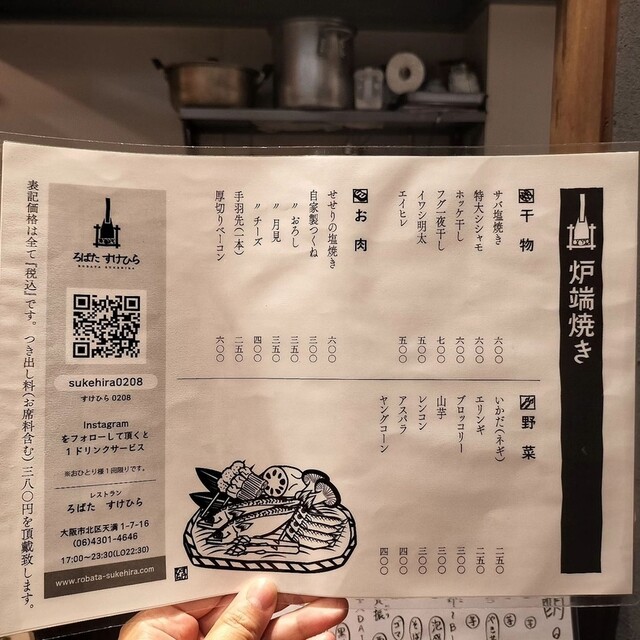 炉端焼き
干物
サバ塩焼き 六〇〇
特大シシャモ 六〇〇
ホッケ干し 六〇〇
フグ一夜干し 七〇〇
イワシ明太 五〇〇
エイヒレ 五〇〇
お肉
せせりの塩焼き 六〇〇
自家製つくね 三〇〇
〃おろし 三五〇
〃月見 三五〇
〃チーズ 四〇〇
手羽先(一本) 二五〇
厚切りベーコン 六〇〇
野菜
いかだ(ネギ) 二五〇
エリンギ 二五〇
ブロッコリー 三〇〇
山芋 三〇〇
レンコン 三〇〇
アスパラ 四〇〇
ヤングコーン 四〇〇
ろばた すけひら
ROBATA SUKEHIRA
sukehira0208
すけひら0208
Instagram
をフォローして頂くと
1ドリンクサービス
※おひとり様1回限りです。
レストラン
ろばた すけひら
大阪市北区天満1-7-16
(06)4301-4646
17:00〜23:30(LO22:30)
www.robata-sukehira.com
表記価格は全て『税込』です。つき出し料(お席料含む)三八〇円を頂戴致します。